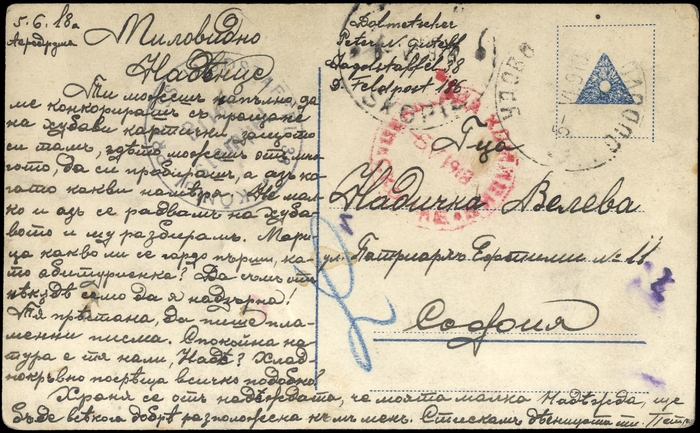 5.6.18а
Аеродрума
Миловидно
Надѣнце
Ти можешъ напълно, да
ме конкорирашъ съ пращане
на хубави картички, защото
си тамъ, гдѣто можешъ отъ мно-
гото, да си пробирашъ, а азъ ка-
гато какви намѣря. Не мал-
ко и азъ се радвамъ на хуба-
вото и му разбирамъ. Мари-
ца какво ли се гордо пърпи, ка-
то абитуриентка? Да съмъ отъ
нѣкѫдѣ само да я надзърна!
Тя прѣстана, да пише пла-
менни писма. Спокойна на-
тура е тя нали, Наде? Хлад-
нокръвно посрѣща всичко подобно
Храня се отъ надѣждата, че моята малка Надѣжда, ще
бѫде всѣкога добрѣ разположена къмъ менъ. Стискамъ дѣсницата ти. Петъръ
Dolmetscher
Peter N.
Jagdstaffel 38
D. Feldpost 186
SKOPIE
УДОВО
5 VI 1918
Г-ца
Надичка Велева
ул. Патриархъ Ефтимий № 11
София